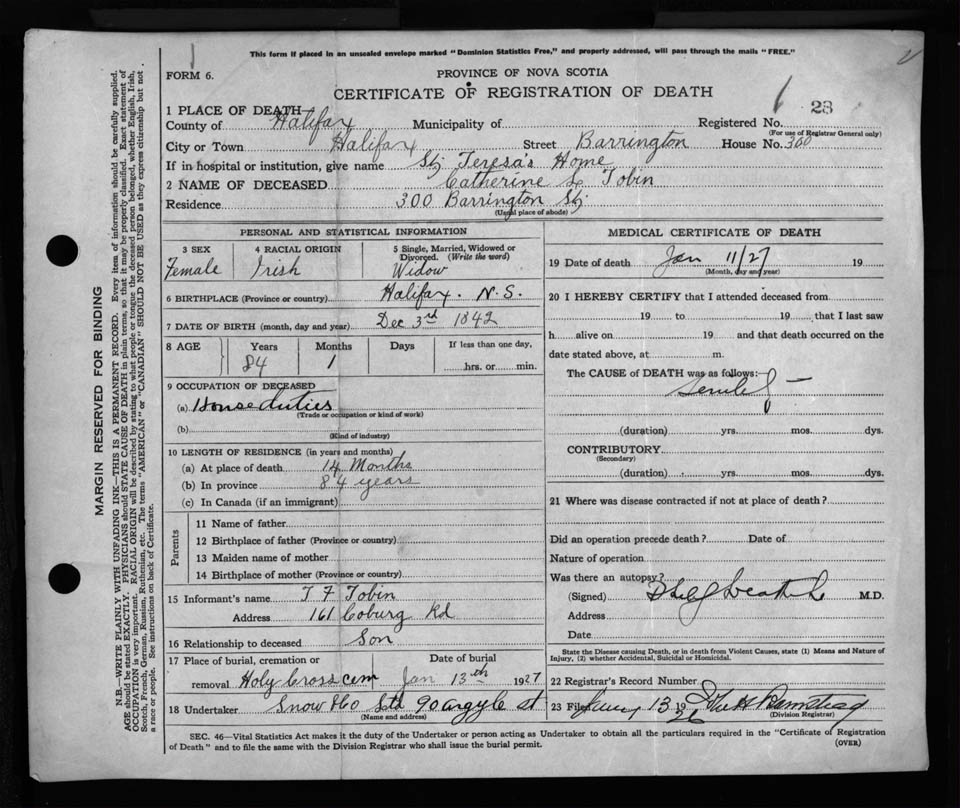 This form if placed in an unsealed envelope marked "Dominion Statistics Free," and properly addressed, will pass through the mails "FREE."
FORM 6.
PROVINCE OF NOVA SCOTIA
CERTIFICATE OF REGISTRATION OF DEATH
1 PLACE OF DEATH
23
County of Halifax Municipality of Registered No.
(For use of Registrar General only)
City or Town Halifax Street Barrington House No. 300
If in hospital or institution, give name St Teresa's Home
2 NAME OF DECEASED Catherine L Tobin
Residence 300 Barrington St
(Usual place of abode)
PERSONAL AND STATISTICAL INFORMATION
3 SEX 4 RACIAL ORIGIN 5 Single, Married, Widowed or Divorced. (Write the word)
Female Irish Widow
6 BIRTHPLACE (Province or country) Halifax. N.S.
7 DATE OF BIRTH (month, day and year) Dec 3rd 1842
8 AGE Years Months Days If less than one day,
84 1 hrs. or min.
9 OCCUPATION OF DECEASED
(a) House duties
(Trade or occupation or kind of work)
(b)
(Kind of industry)
10 LENGTH OF RESIDENCE (in years and months)
(a) At place of death 14 Months
(b) In province 84 years
(c) In Canada (if an immigrant)
Parents
11 Name of father
12 Birthplace of father (Province or country)
13 Maiden name of mother
14 Birthplace of mother (Province or country)
15 Informant's name T F Tobin
Address 161 Coburg Rd
16 Relationship to deceased Son
17 Place of burial, cremation or Date of burial
removal Holy Cross cem Jan 13th 1927
18 Undertaker Snow & Co Ltd 90 argyle st
(Name and address)
MEDICAL CERTIFICATE OF DEATH
19 Date of death Jan 11/27 19
(Month, day and year)
20 I HEREBY CERTIFY that I attended deceased from
19 to 19 , that I last saw
h alive on 19 and that death occurred on the
date stated above, at m.
The CAUSE of DEATH was as follows:
Senility
(duration) yrs. mos. dys.
CONTRIBUTORY
(Secondary)
(duration) yrs. mos. dys.
21 Where was disease contracted if not at place of death?
Did an operation precede death? Date of
Nature of operation
Was there an autopsy?
(Signed) M.D.
Address
Date
State the Disease causing Death, or in death from Violent Causes, state (1) Means and Nature of
Injury, (2) whether Accidental, Suicidal or Homicidal.
22 Registrar's Record Number
23 Filed 13 19
(Division Registrar)
SEC. 46—Vital Statistics Act makes it the duty of the Undertaker or person acting as Undertaker to obtain all the particulars required in the "Certificate of Registration
of Death" and to file the same with the Division Registrar who shall issue the burial permit.
(OVER)
MARGIN RESERVED FOR BINDING
N.B.—WRITE PLAINLY WITH UNFADING INK—THIS IS A PERMANENT RECORD. Every item of information should be carefully supplied.
AGE should be stated EXACTLY. PHYSICIANS should STATE CAUSE OF DEATH in plain terms, so that it may be properly classified. Exact statement of
OCCUPATION is very important. RACIAL ORIGIN will be described by stating to what people or tongue the deceased person belonged, whether English, Irish,
Scotch, French, German, Russian, Ruthenian, etc. The terms "AMERICAN" or "CANADIAN" SHOULD NOT BE USED as they express citizenship but not
a race or people. See instructions on back of Certificate.